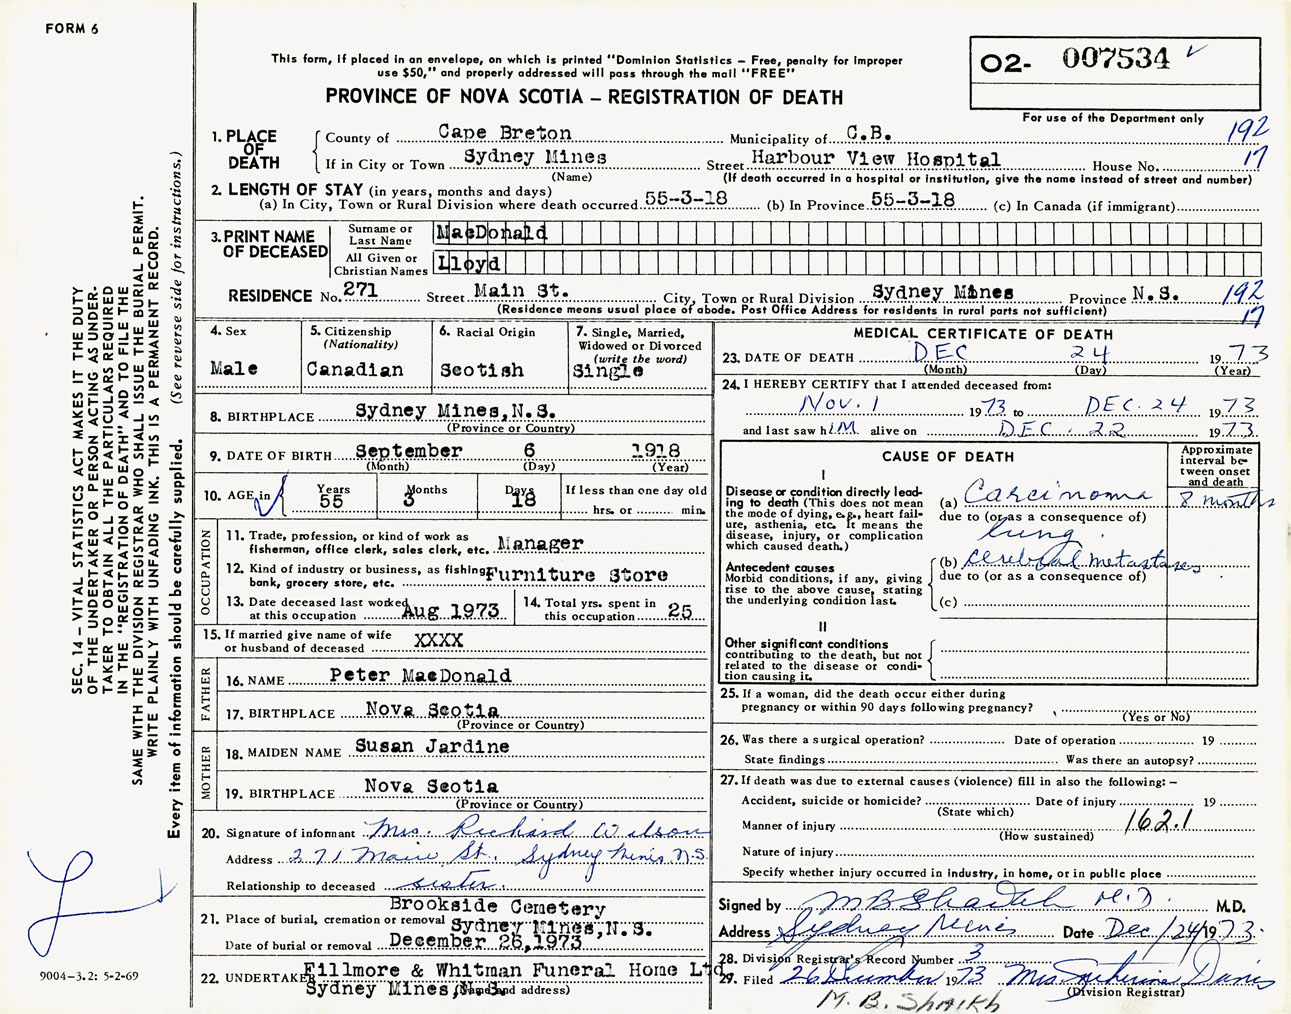 FORM 6
This form, if placed in an envelope, on which is printed "Dominion Statistics – Free, penalty for improper
use $50," and properly addressed will pass through the mail "FREE"
PROVINCE OF NOVA SCOTIA – REGISTRATION OF DEATH
02- 007534
For use of the Department only
192
17
1. PLACE OF DEATH
County of Cape Breton Municipality of C.B.
If in City or Town Sydney Mines Street Harbour View Hospital House No.
(Name) (If death occurred in a hospital or institution, give the name instead of street and number)
2. LENGTH OF STAY (in years, months and days)
(a) In City, Town or Rural Division where death occurred 55-3-18 (b) In Province 55-3-18 (c) In Canada (if immigrant)
3. PRINT NAME OF DECEASED
Surname or Last Name MacDonald
All Given or Christian Names Lloyd
RESIDENCE No. 271 Street Main St. City, Town or Rural Division Sydney Mines Province N.S. 192
(Residence means usual place of abode. Post Office Address for residents in rural parts not sufficient) 17
4. Sex Male
5. Citizenship (Nationality) Canadian
6. Racial Origin Scotish
7. Single, Married, Widowed or Divorced (write the word) Single
8. BIRTHPLACE Sydney Mines, N.S.
(Province or Country)
9. DATE OF BIRTH September 6 1918
(Month) (Day) (Year)
10. AGE in Years 55 Months 3 Days 18 If less than one day old
hrs. or min.
OCCUPATION
11. Trade, profession, or kind of work as
fisherman, office clerk, sales clerk, etc. Manager
12. Kind of industry or business, as fishing,
bank, grocery store, etc. Furniture Store
13. Date deceased last worked
at this occupation Aug 1973
14. Total yrs. spent in
this occupation 25
15. If married give name of wife
or husband of deceased XXXX
FATHER
16. NAME Peter MacDonald
17. BIRTHPLACE Nova Scotia
(Province or Country)
MOTHER
18. MAIDEN NAME Susan Jardine
19. BIRTHPLACE Nova Scotia
(Province or Country)
20. Signature of informant Mrs. Richard Wilson
Address 271 Main St. Sydney Mines N.S.
Relationship to deceased sister
21. Place of burial, cremation or removal Brookside Cemetery
Sydney Mines, N.S.
Date of burial or removal December 26, 1973
22. UNDERTAKER Fillmore & Whitman Funeral Home Ltd.
Sydney Mines, N.S. (Name and address)
MEDICAL CERTIFICATE OF DEATH
23. DATE OF DEATH DEC 24 1973
(Month) (Day) (Year)
24. I HEREBY CERTIFY that I attended deceased from:
Nov. 1 1973 to DEC. 24 1973
and last saw hIM alive on DEC. 22 1973.
CAUSE OF DEATH
Approximate interval between onset and death
I
Disease or condition directly lead-
ing to death (This does not mean
the mode of dying, e.g., heart fail-
ure, asthenia, etc. It means the
disease, injury, or complication
which caused death.)
(a) Carcinoma 8 months
due to (or as a consequence of)
lung
Antecedent causes
Morbid conditions, if any, giving
rise to the above cause, stating
the underlying condition last.
(b) cerebral metastases
due to (or as a consequence of)
(c)
II
Other significant conditions
contributing to the death, but not
related to the disease or condi-
tion causing it.
25. If a woman, did the death occur either during
pregnancy or within 90 days following pregnancy?
(Yes or No)
26. Was there a surgical operation? Date of operation 19
State findings Was there an autopsy?
27. If death was due to external causes (violence) fill in also the following: –
Accident, suicide or homicide? Date of injury 19
(State which)
Manner of injury 162.1
(How sustained)
Nature of injury
Specify whether injury occurred in industry, in home, or in public place
Signed by M B Shaikh M.D. M.D.
Address Sydney Mines Date Dec/24/1973.
28. Division Registrar's Record Number 3
29. Filed 26 December 1973 Mrs. Davis
(Division Registrar)
M. B. Shaikh
SEC. 14 – VITAL STATISTICS ACT MAKES IT THE DUTY
OF THE UNDERTAKER OR PERSON ACTING AS UNDER-
TAKER TO OBTAIN ALL THE PARTICULARS REQUIRED
IN THE "REGISTRATION OF DEATH" AND TO FILE THE
SAME WITH THE DIVISION REGISTRAR WHO SHALL ISSUE THE BURIAL PERMIT.
WRITE PLAINLY WITH UNFADING INK. THIS IS A PERMANENT RECORD.
Every item of information should be carefully supplied. (See reverse side for instructions.)
9004-3.2: 5-2-69